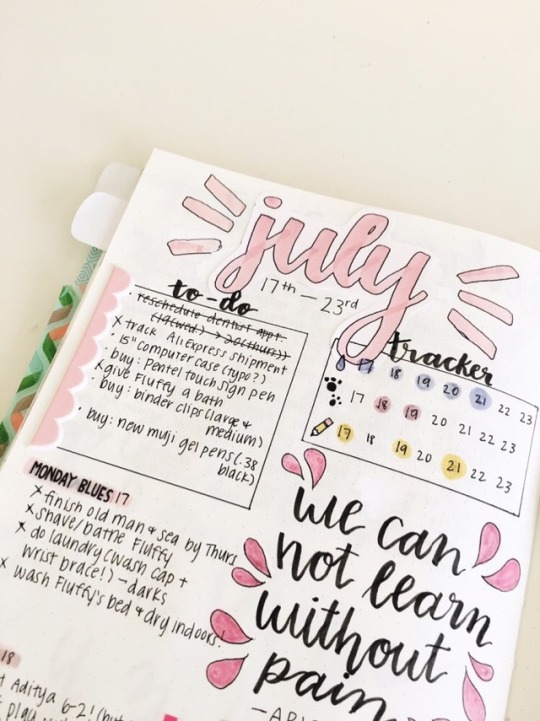 july
17th — 23rd
to-do
· reschedule dentist appt.
(19(wed.) → 20(thurs))
x track AliExpress shipment
· 15" computer case (typo?)
· buy: Pentel touch sign pen
x give Fluffy a bath
· buy: binder clips (large &
medium)
· buy: new muji gel pens (.38
black)
tracker
17 18 19 20 21 22 23
17 18 19 20 21 22 23
17 18 19 20 21 22 23
MONDAY BLUES 17
x finish old man & sea by Thurs
x shave/bathe Fluffy
x do laundry (wash cap +
wrist brace!) – darks
x wash Fluffy's bed & dry indoors!
we can
not learn
without
pain
18
Aditya 6-2! (but
play